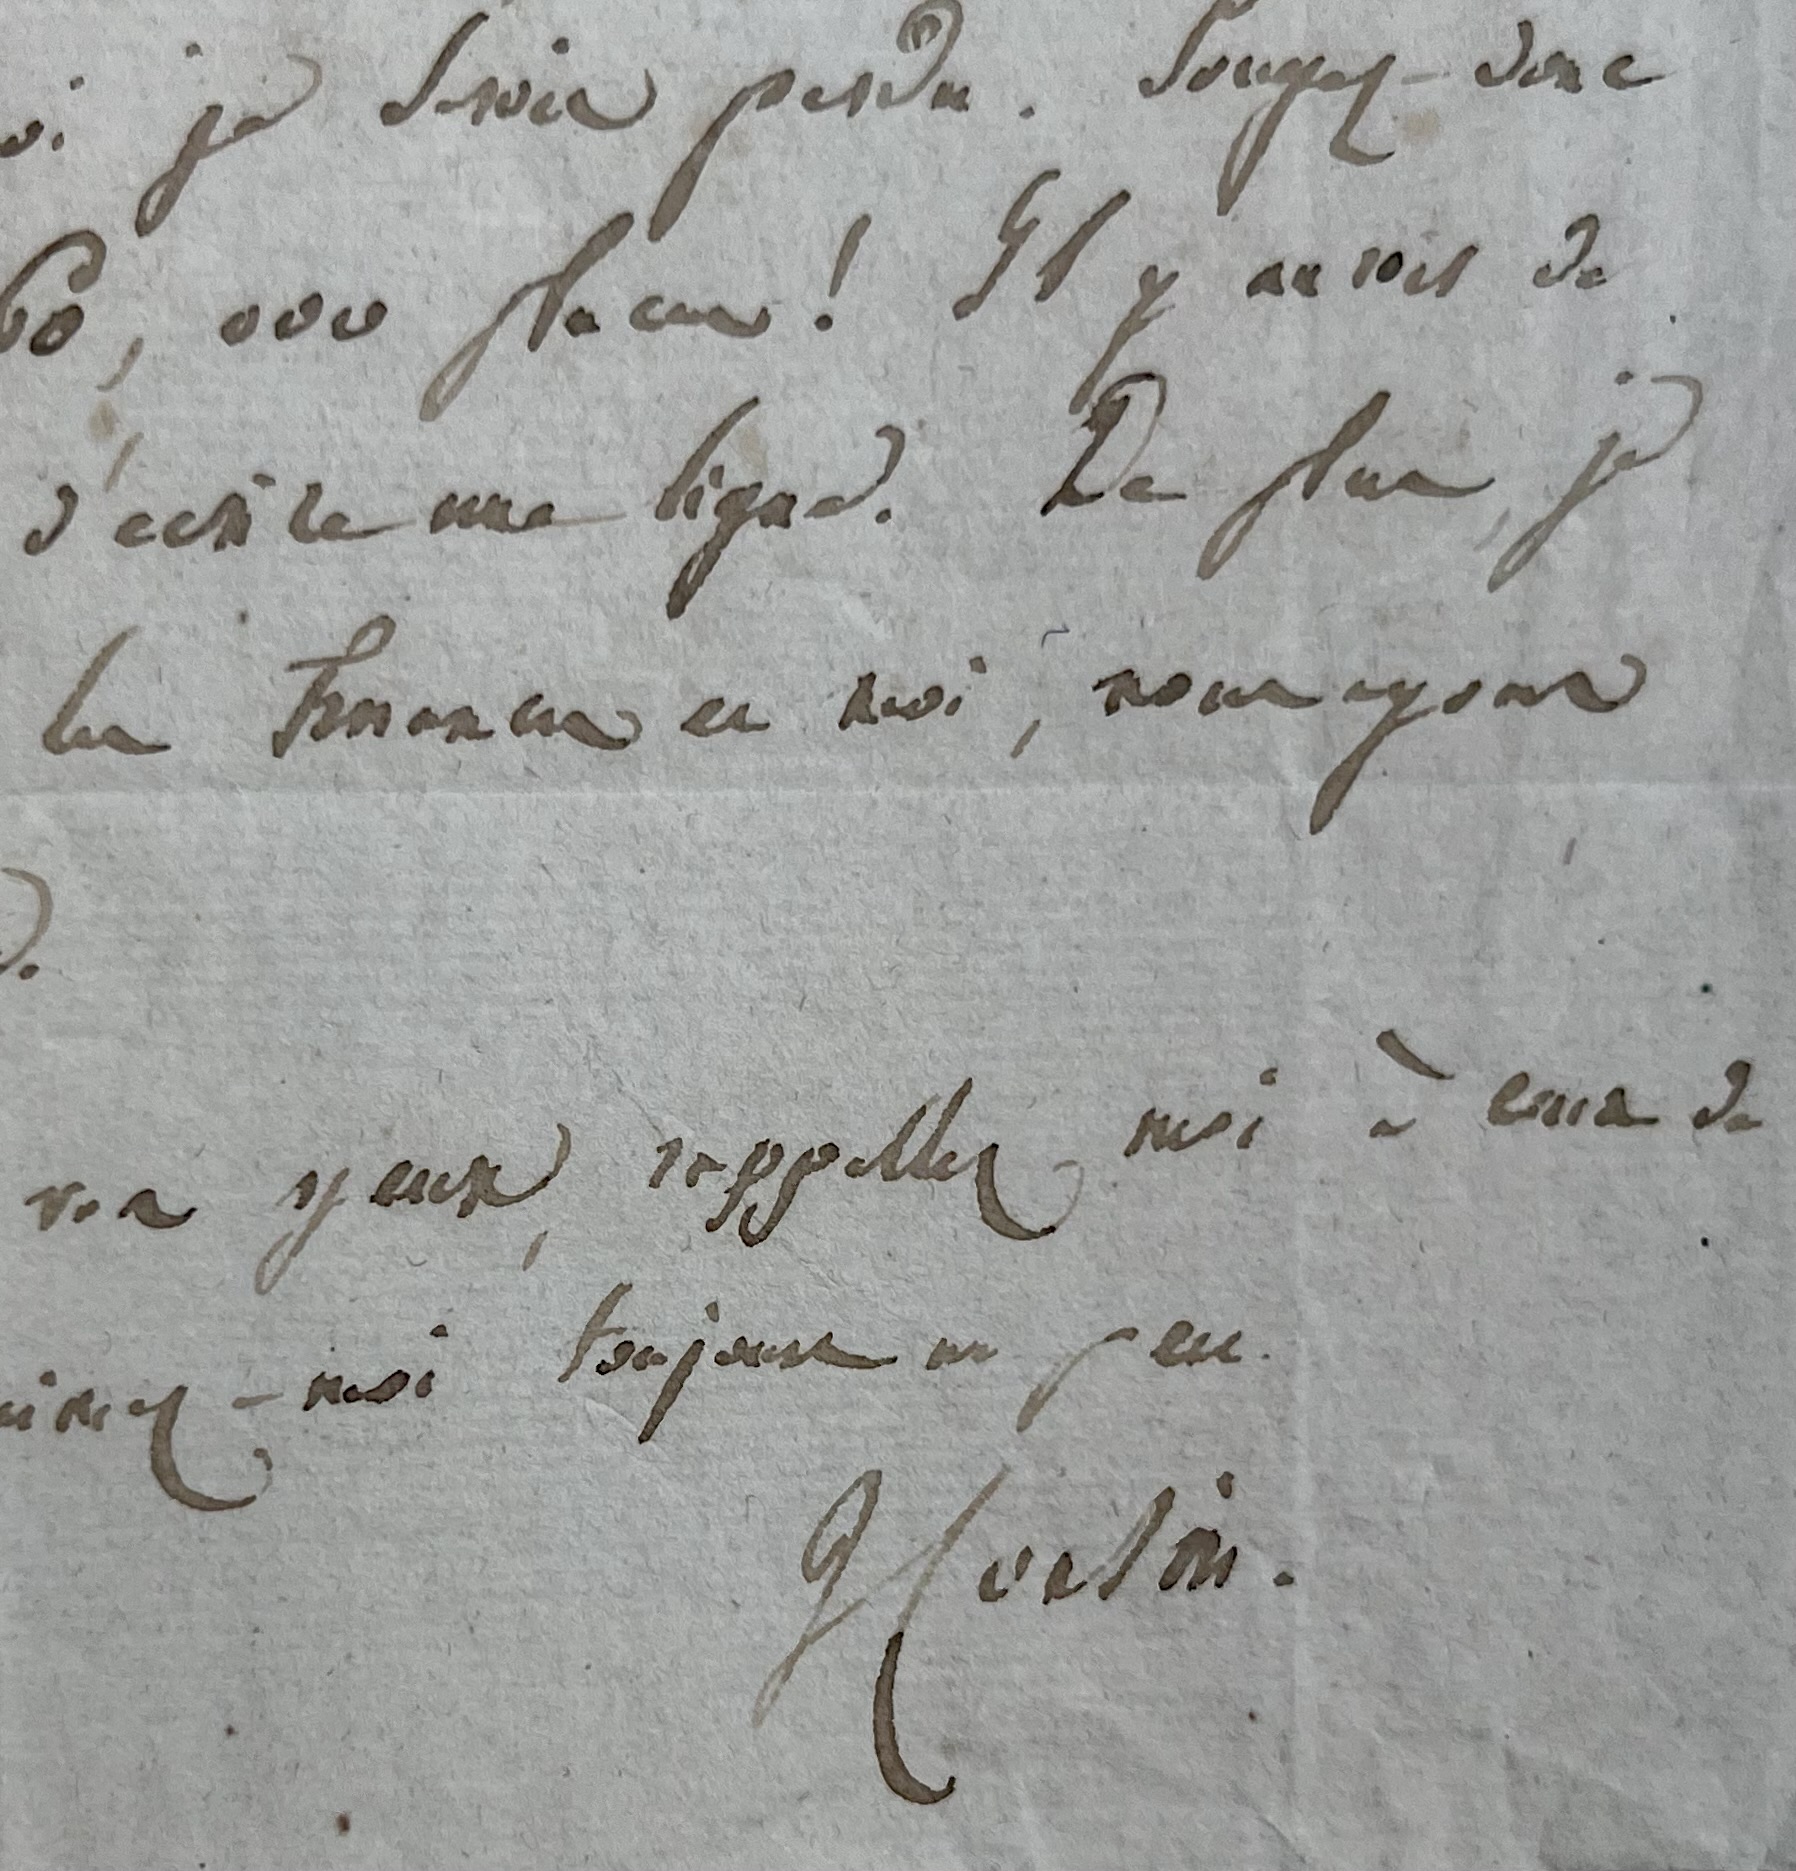 oi je serois perdu. Songez-donc
60,000 francs! Il y auroit de
d'écrire une ligne. De plus, je
les femmes et moi, nous ayons
vos yeux, rappellez-moi à ceux de
aimez-moi toujours un peu.